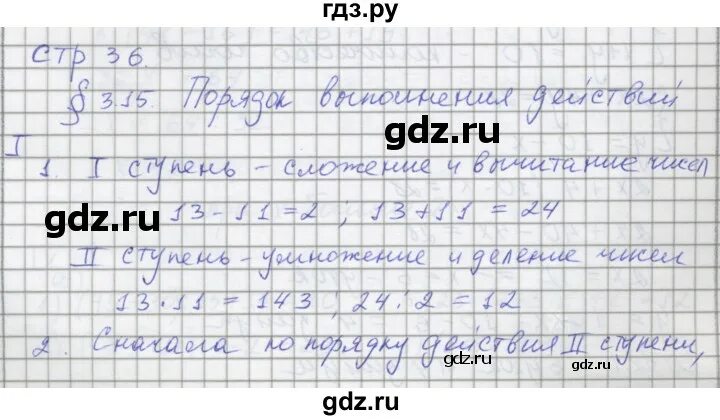 гдз.ру
стр 36.
§ 3.15. Порядок выполнения действий
gdz.ru
I
1. I ступень - сложение и вычитание чисел
gdz.ru
13 - 11 = 2 ; 13 + 11 = 24
II ступень - умножение и деление чисел
13 · 11 = 143 ; 24 : 2 = 12
2. Сначала по порядку действия II ступени,
gdz.ru
gdz.ru
gdz.ru